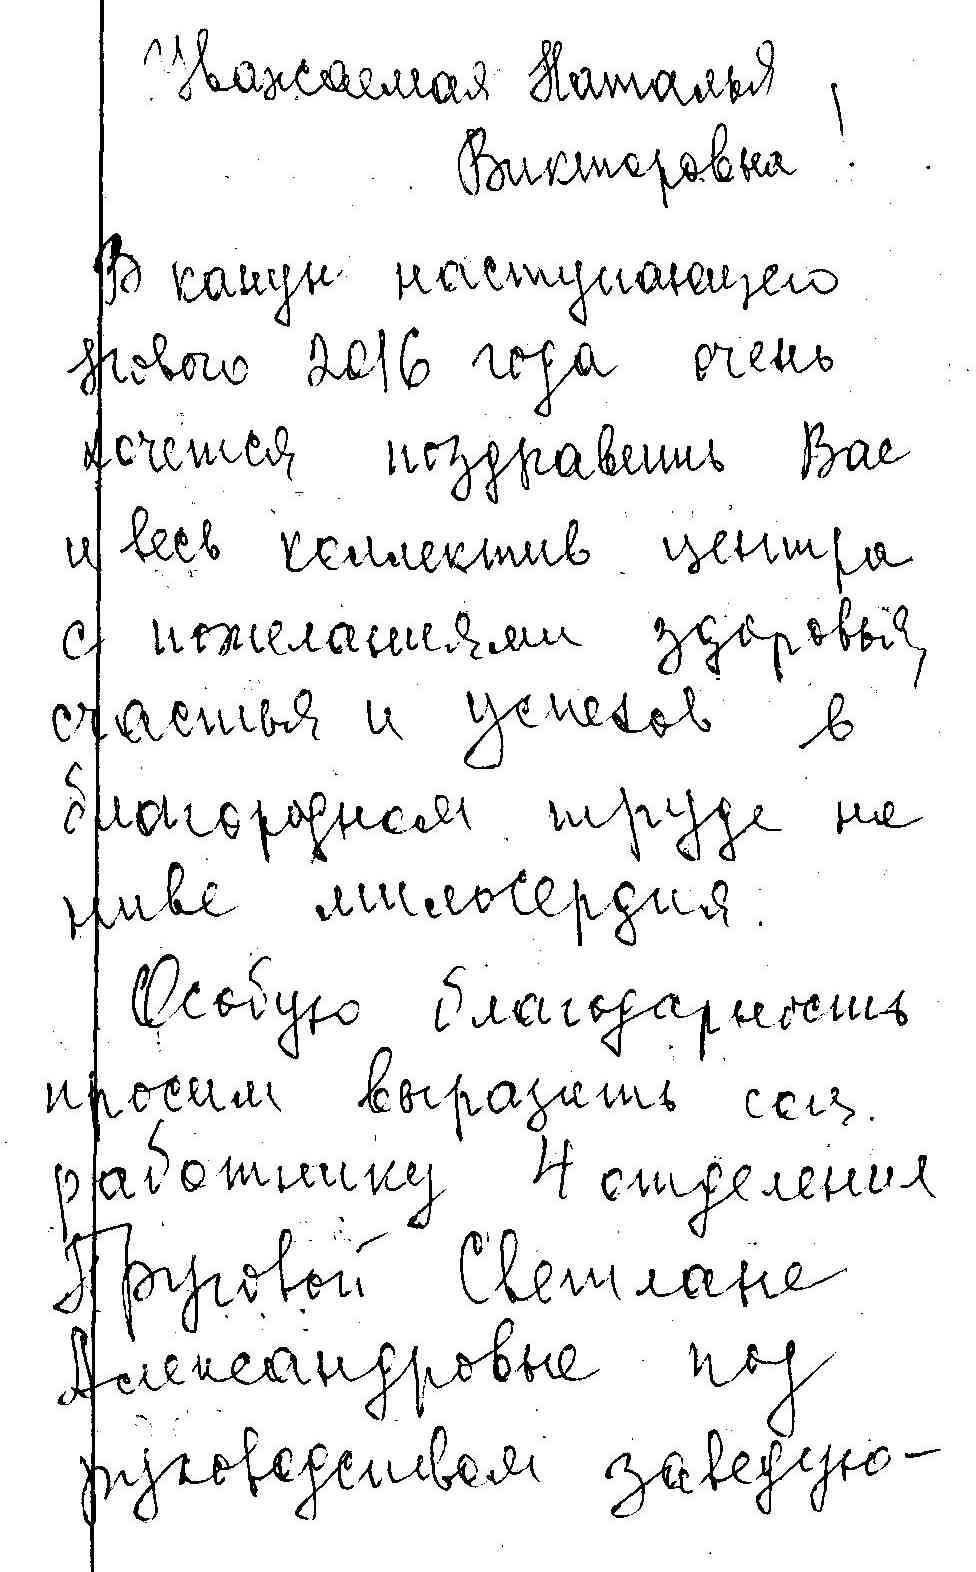 Уважаемая Наталья
Викторовна!
В канун наступающего
Нового 2016 года очень
хочется поздравить Вас
и весь коллектив центра
с пожеланиями здоровья,
счастья и успехов в
благородном труде на
ниве милосердия.
Особую благодарность
просим выразить соц.
работнику 4 отделения
Пруговой Светлане
Александровне под
руководством заведую-